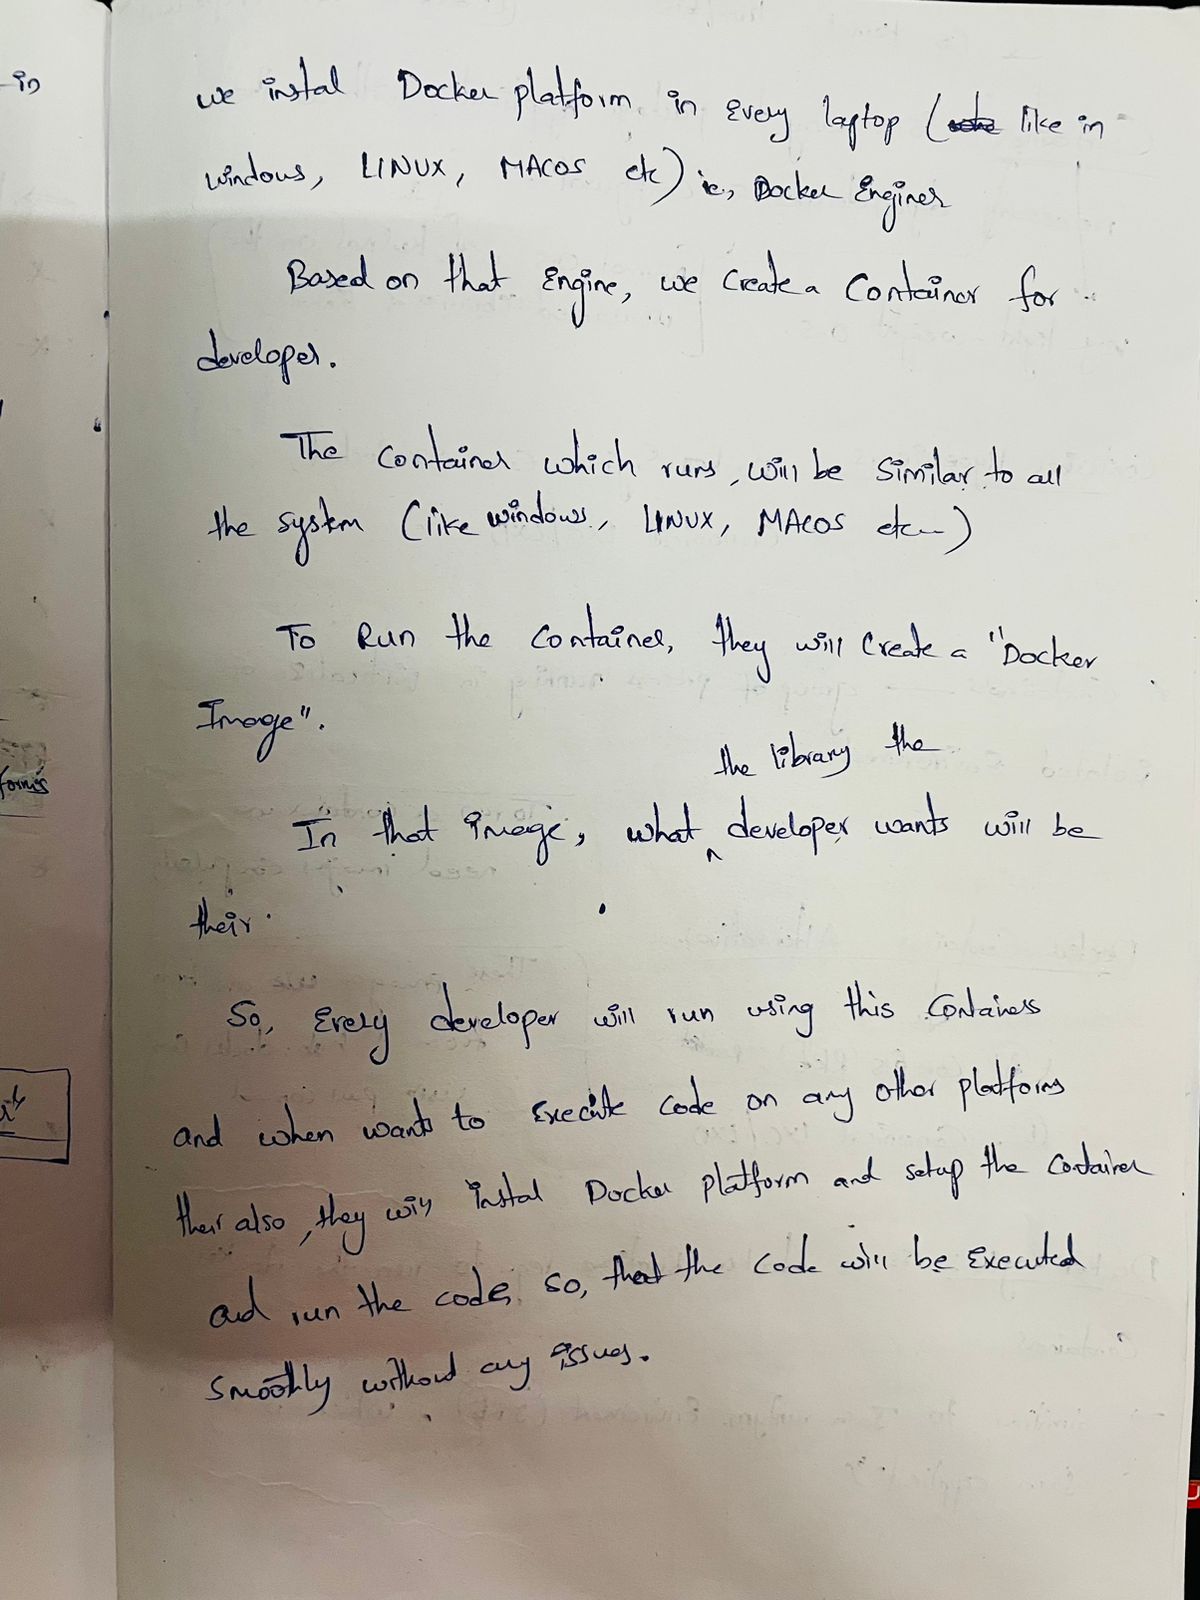 we instal Docker platform in Every laptop ( like in
windows, LINUX, MACOS etc) ie, Docker Enginer
Based on that Engine, we Create a Container for
developer.
The Container which runs, will be Similar to all
the system (like windows, LINUX, MACOS etc...)
To Run the Container, they will Create a "Docker
Image".
the library the
In that image, what ^ developer wants will be
their.
So, Every developer will run using this Containers
and when wants to Execute code on any other platforms
their also, they will instal Docker platform and setup the Container
and run the code, so, that the code will be Executed
Smoothly without any issues.
-in
forms